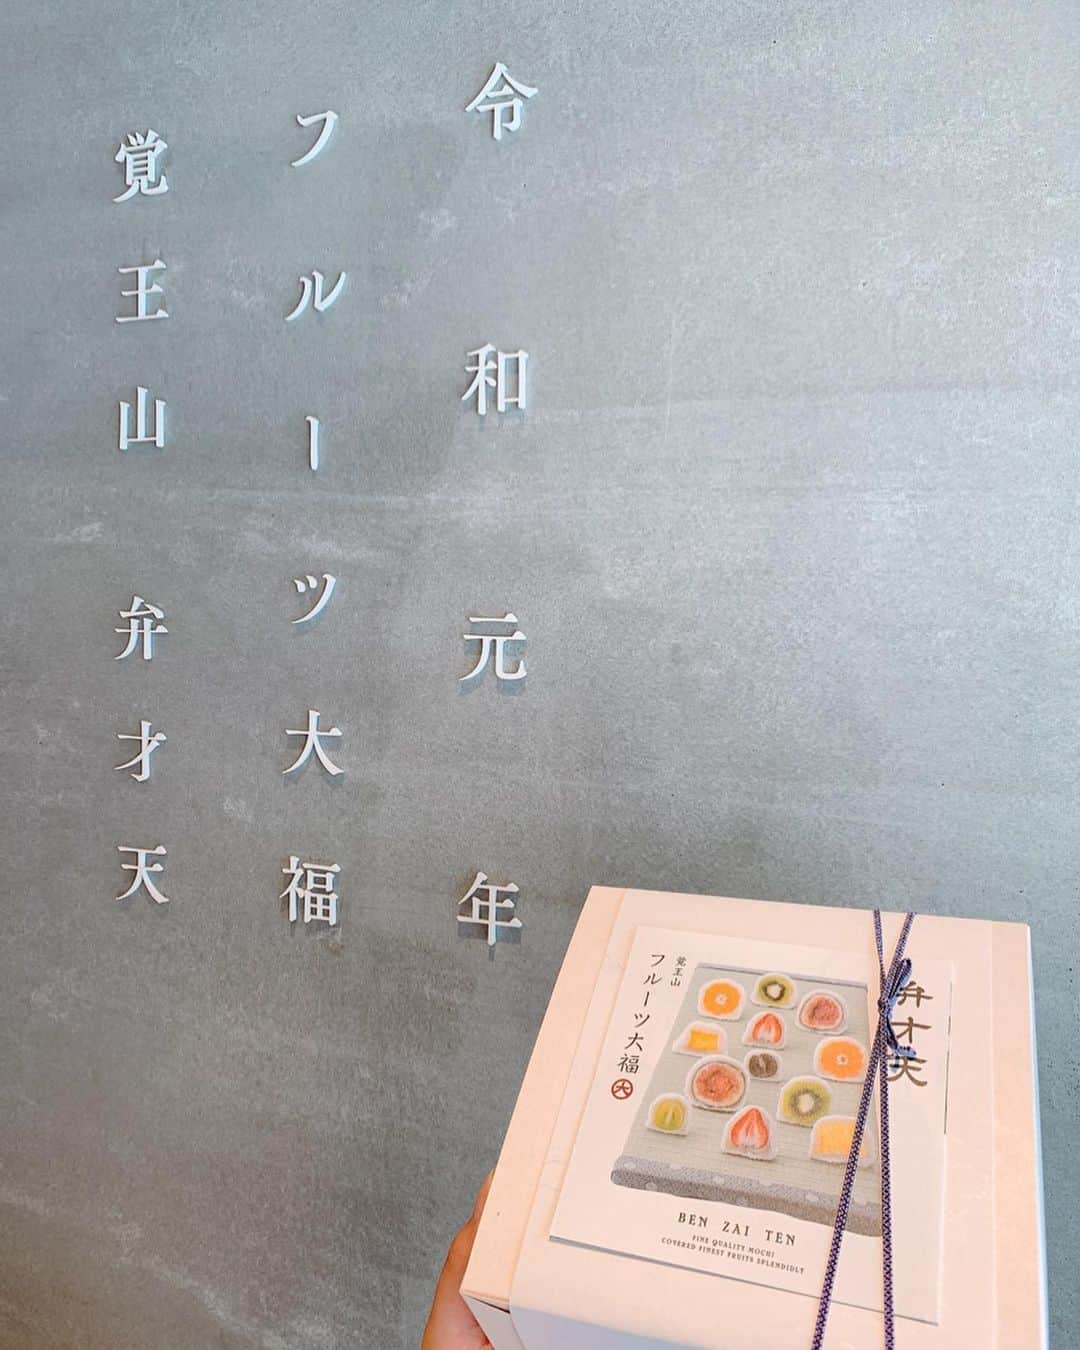 令和元年
フルーツ大福
覚王山 弁才天
弁才天
覚王山
フルーツ大福
大
BEN ZAI TEN
FINE QUALITY MOCHI
COVERED FINEST FRUITS SPLENDIDLY